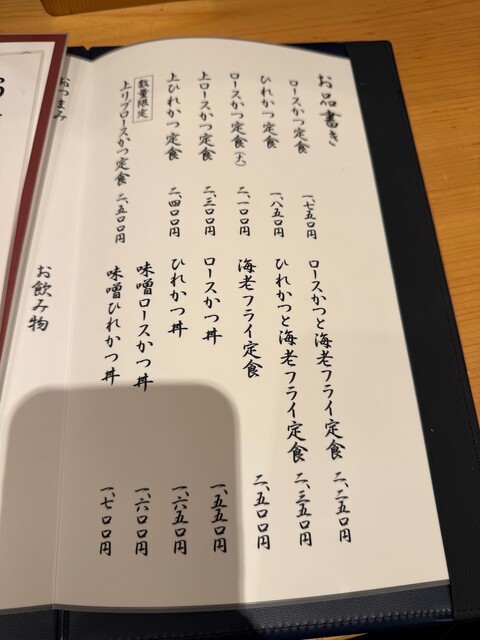 お品書き
ロースかつ定食 一、七五〇円
ひれかつ定食 一、八五〇円
ロースかつ定食(大) 二、一〇〇円
上ロースかつ定食 二、三〇〇円
上ひれかつ定食 二、四〇〇円
数量限定
上リブロースかつ定食 二、五〇〇円
ロースかつと海老フライ定食 二、二五〇円
ひれかつと海老フライ定食 二、三五〇円
海老フライ定食 二、五〇〇円
ロースかつ丼 一、五五〇円
ひれかつ丼 一、六五〇円
味噌ロースかつ丼 一、六〇〇円
味噌ひれかつ丼 一、七〇〇円
おつまみ
お飲み物